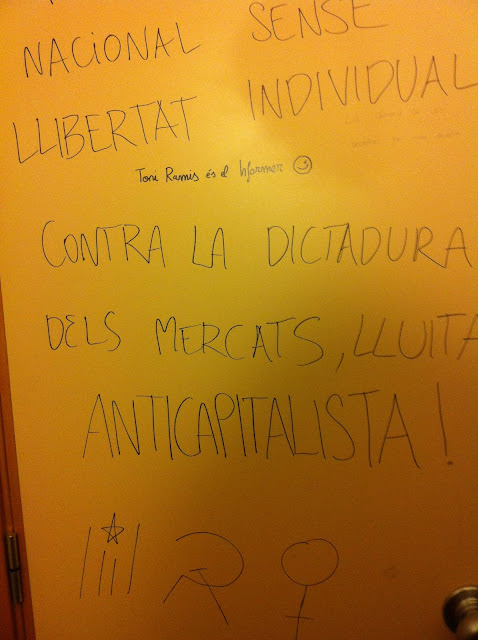 NACIONAL SENSE
LLIBERTAT INDIVIDUAL
Toni Ramis és el Informer
CONTRA LA DICTADURA
DELS MERCATS, LLUITA
ANTICAPITALISTA!